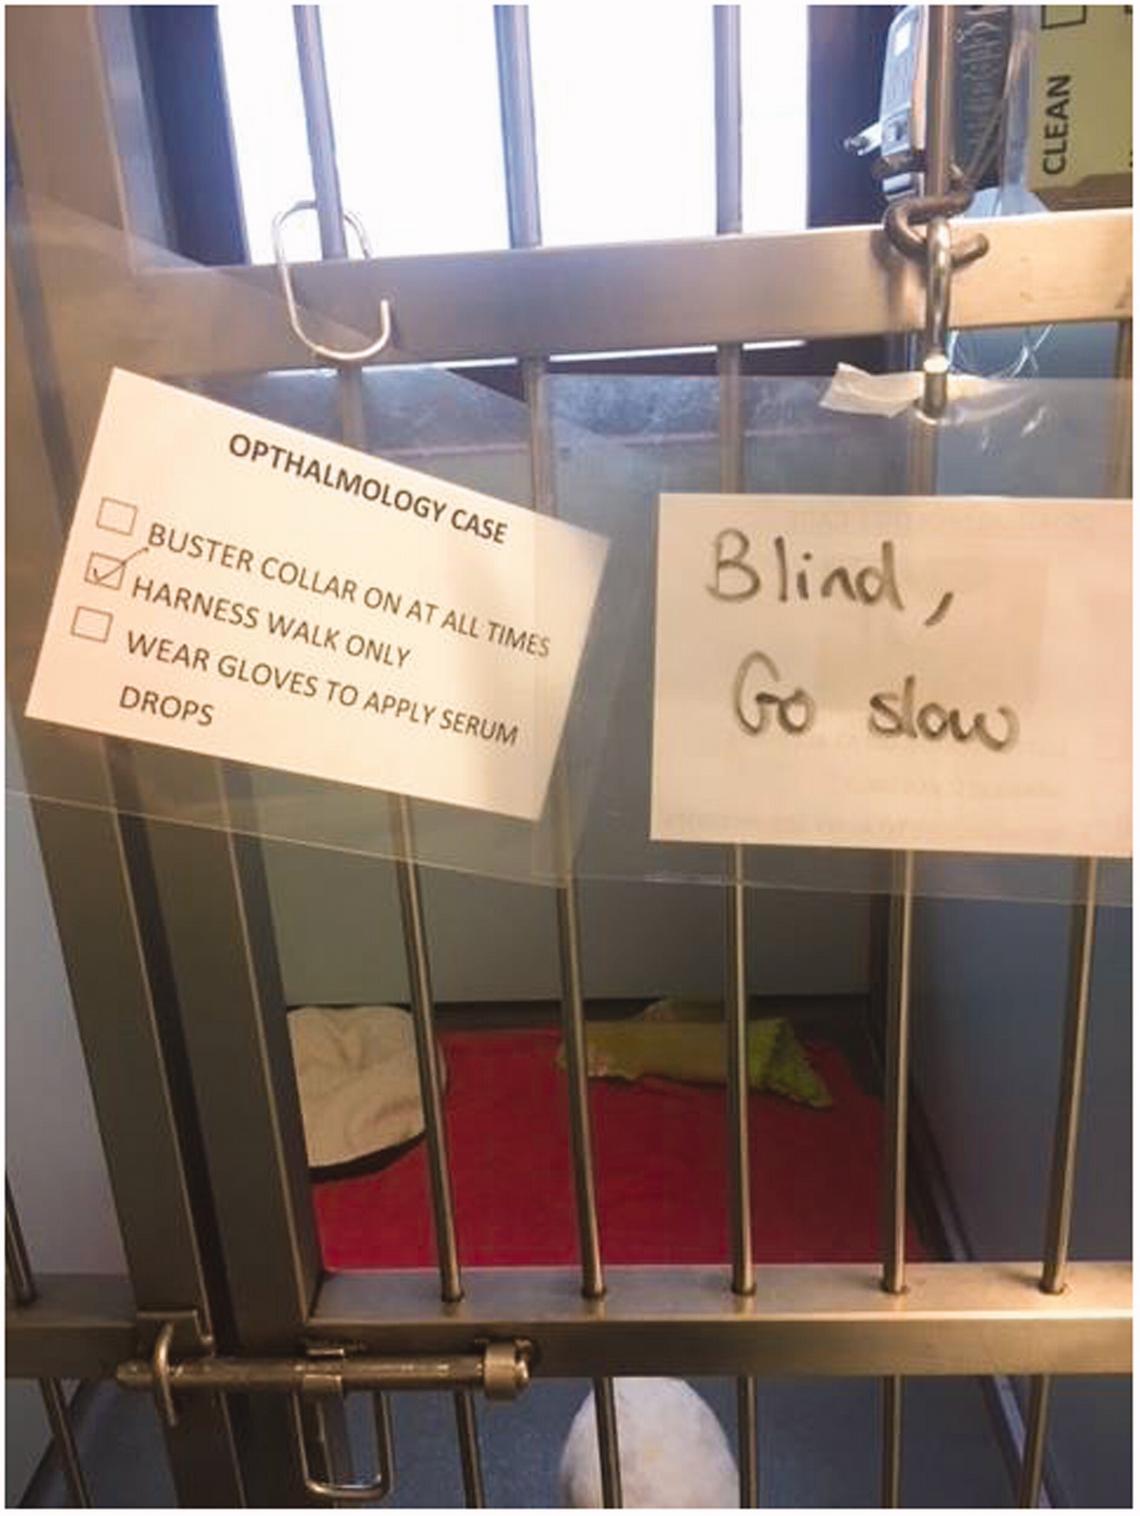 CLEAN
OPTHALMOLOGY CASE
BUSTER COLLAR ON AT ALL TIMES
HARNESS WALK ONLY
WEAR GLOVES TO APPLY SERUM
DROPS
Blind,
Go slow